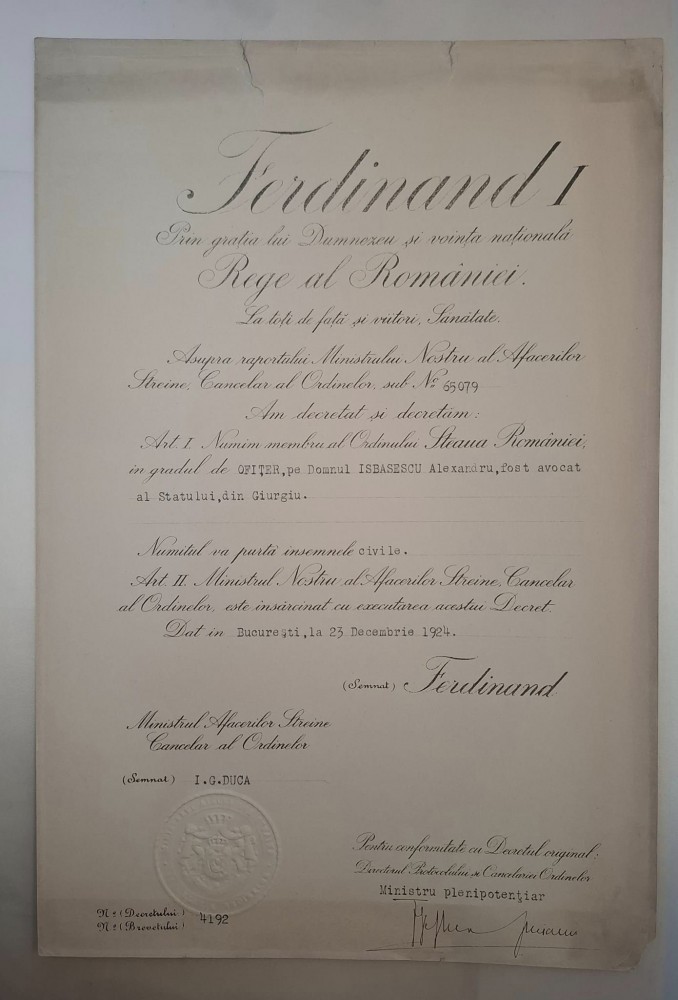 Ferdinand I
Prin grația lui Dumnezeu și voința națională
Rege al României.
La toți de față și viitori, Sanătate.
Asupra raportului Ministrului Nostru al Afacerilor
Streine, Cancelar al Ordinelor, sub Nº 65079
Am decretat și decretăm:
Art. I Numim membru al Ordinului Steaua României,
in gradul de OFIȚER,pe Domnul ISBASESCU Alexandru,fost avocat
al Statului,din Giurgiu.
Numitul va purtă insemnele civile.
Art. II. Ministrul Nostru al Afacerilor Streine, Cancelar
al Ordinelor, este insărcinat cu executarea acestui Decret.
Dat in București,la 23 Decembrie 1924.
(Semnat) Ferdinand
Ministrul Afacerilor Streine
Cancelar al Ordinelor
(Semnat) I.G.DUCA
Pentru conformitate cu Decretul original:
Directorul Protocolului și Cancelariei Ordinelor
Ministru plenipotențiar
Nº (Decretului)
Nº (Brevetului) 4192